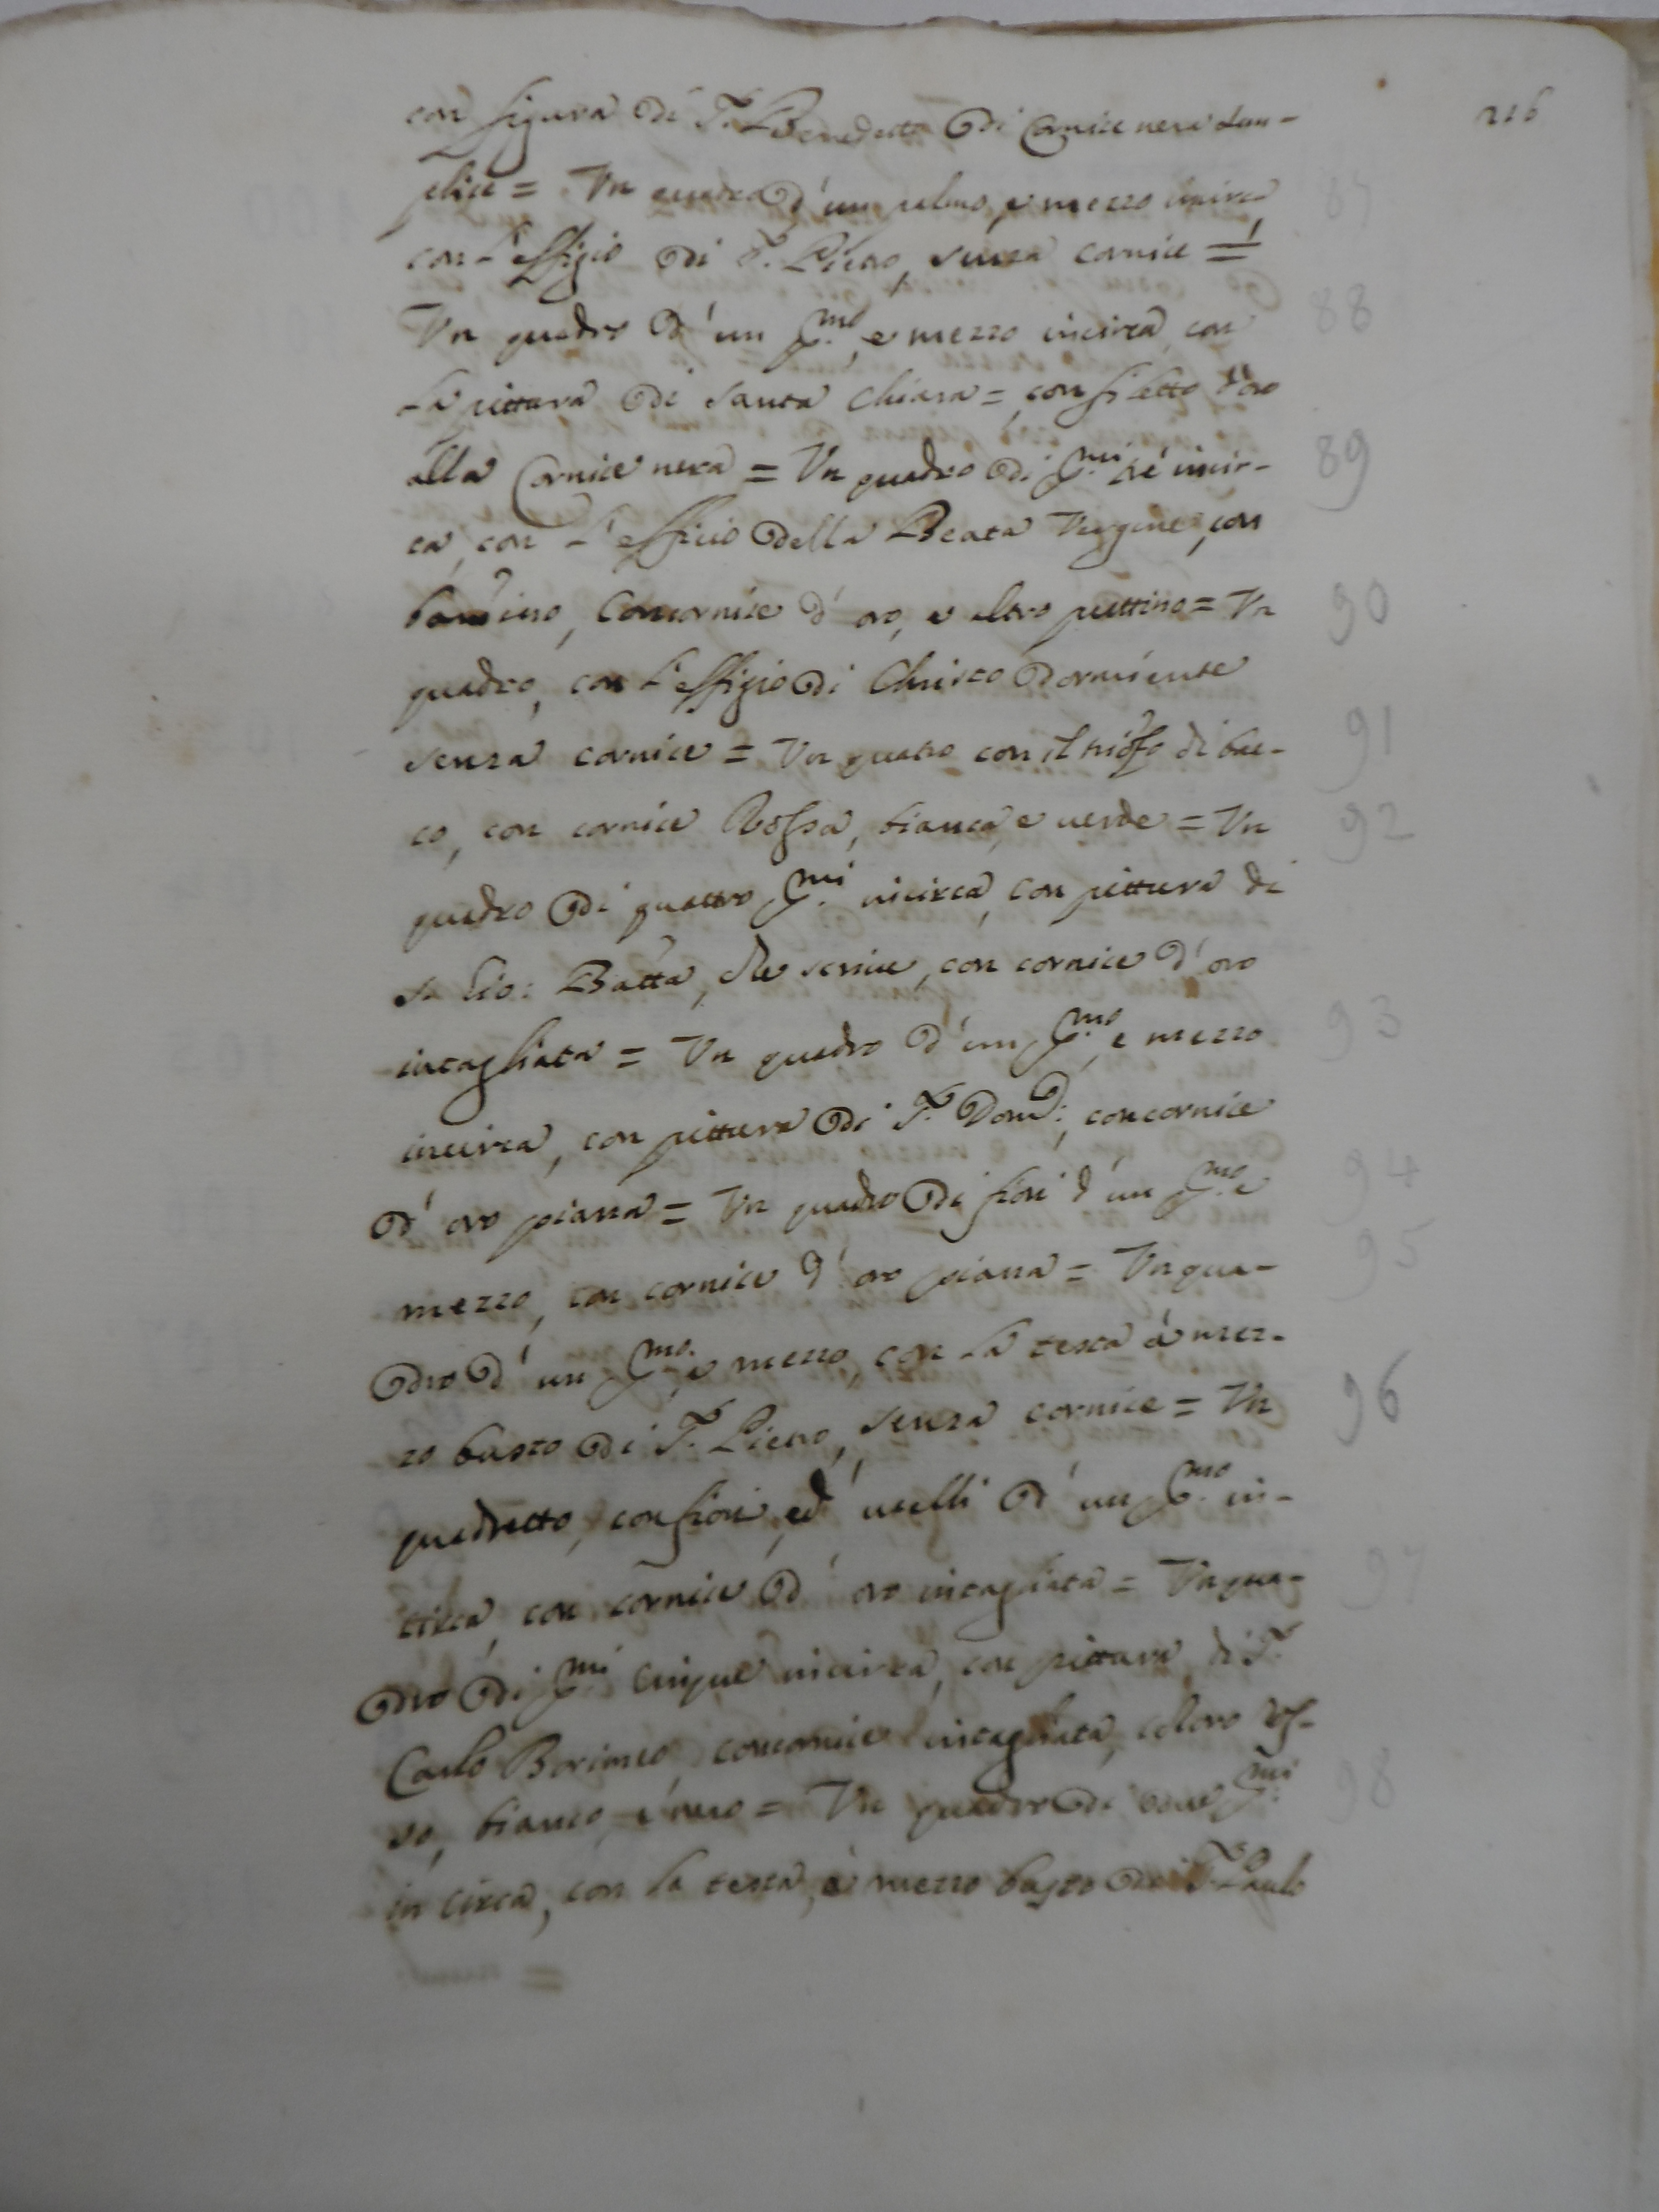 216
con figura di S. Benedetto di Cornice nera sem-
plice = Un quadro d'un palmo, e mezzo incirca 87
con l'effigie di S. Pietro, senza cornice =
Un quadro d'un p.mo, e mezzo incirca, con 88
la pittura di santa Chiara = con filetto d'oro
alla Cornice nera = Un quadro di p.mi tré incir- 89
ca, con l'efficie della Beata Vergine, con
bambino, con cornice d'oro, e altro puttino = Un 90
quadro, con l'effigie di Christo Dormiente
senza cornice = Un quadro con il triófo di bac- 91
co, con cornice Rossa, bianca, e uerde = Un 92
quadro di quattro p.mi incirca, con pittura di
S. Gio: Batta, che scriue, con cornice d'oro
intagliata = Un quadro d'un p.mo, e mezzo 93
incirca, con pittura di S. Dom:, con cornice
d'oro piana = Un quadro di fiori d'un p.mo e 94
mezzo, con cornice d'oro piana = Un qua- 95
dro d'un p.mo, e mezzo, con la testa á mez-
zo busto di S. Pietro, senza cornice = Un 96
quadretto, con fiori, ed' ucelli d'un p.mo in-
circa, con cornice d'oro intagliata = Un qua- 97
dro di p.mi Cinque incirca, con pittura di S.
Carlo Borimeo con cornice intagliata, colore ros-
so, bianco, é nero = Un quadro di due p.mi 98
in circa, con la testa, á mezzo busto di S. Paulo